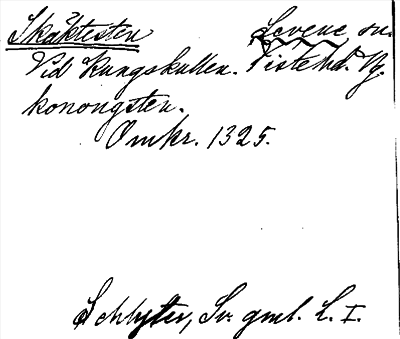 Skäktesten Levene sn.
Vid Kungskullen. Viste hd. Vg.
konongsten.
Omkr. 1325.
Schlyter, Sv. gml. L. I.